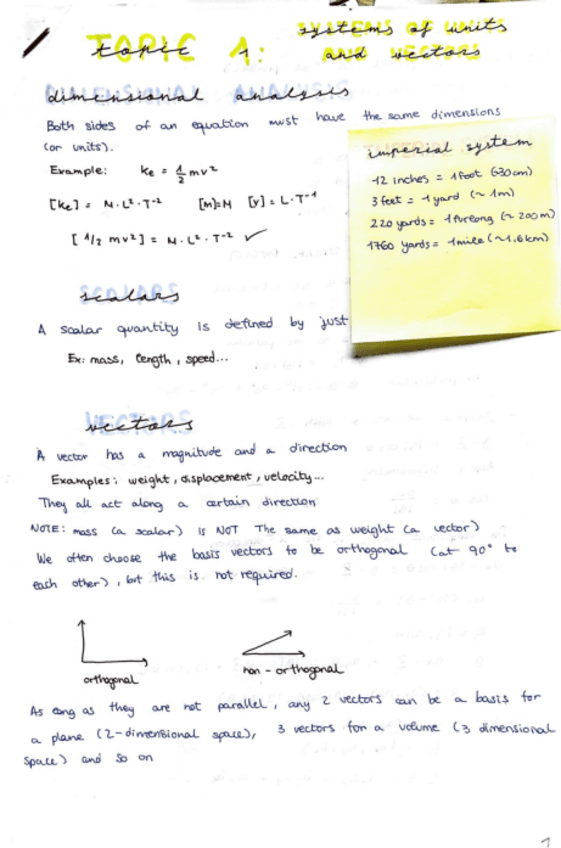 TOPIC 1: systems of units
and vectors
dimensional analysis
Both sides of an equation must have the same dimensions
(or units).
Example: Ke = 1/2 mv²
[Ke] = M·L²·T⁻² [m]=M [v]=L·T⁻¹
[1/2 mv²] = M·L²·T⁻² ✓
imperial system
12 inches = 1 foot (~30cm)
3 feet = 1 yard (~1m)
220 yards = 1 furlong (~200m)
1760 yards = 1 mile (~1.6km)
scalars
A scalar quantity is defined by just
Ex: mass, length, speed...
vectors
A vector has a magnitude and a direction
Examples: weight, displacement, velocity...
They all act along a certain direction
NOTE: mass (a scalar) is NOT The same as weight (a vector)
We often choose the basis vectors to be orthogonal (at 90° to
each other), but this is not required.
orthogonal
non-orthogonal
As long as they are not parallel, any 2 vectors can be a basis for
a plane (2-dimensional space), 3 vectors for a volume (3 dimensional
space) and so on
1